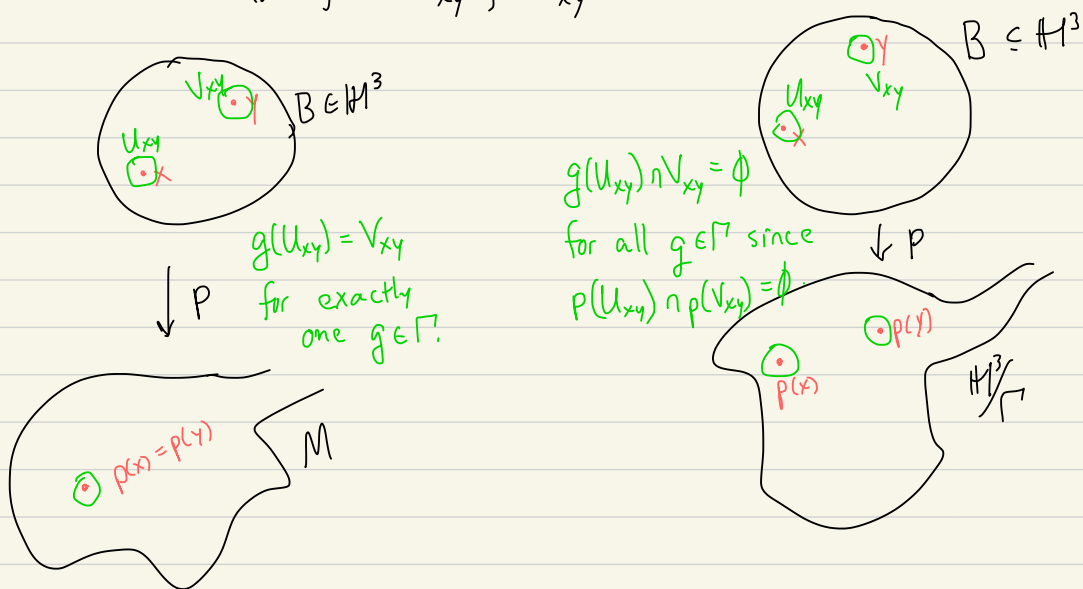 xy , xy
V_xy
y
B ∈ ℍ³
U_xy
x
g(U_xy) = V_xy
for exactly
one g ∈ Γ.
↓ p
p(x) = p(y)
M
B ⊆ ℍ³
y
V_xy
U_xy
x
g(U_xy) ∩ V_xy = ϕ
for all g ∈ Γ since
p(U_xy) ∩ p(V_xy) = ϕ.
↓ p
p(y)
p(x)
ℍ³/Γ